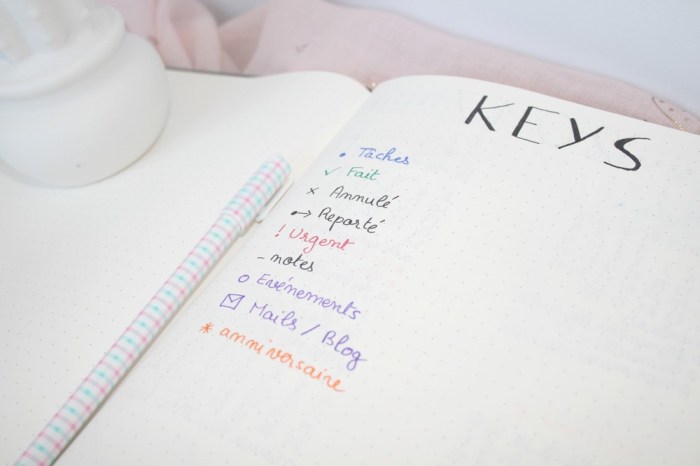 KEYS
• Tâches
✓ Fait
× Annulé
•→ Reporté
! Urgent
- notes
o Evénements
✉ Mails / Blog
* anniversaire